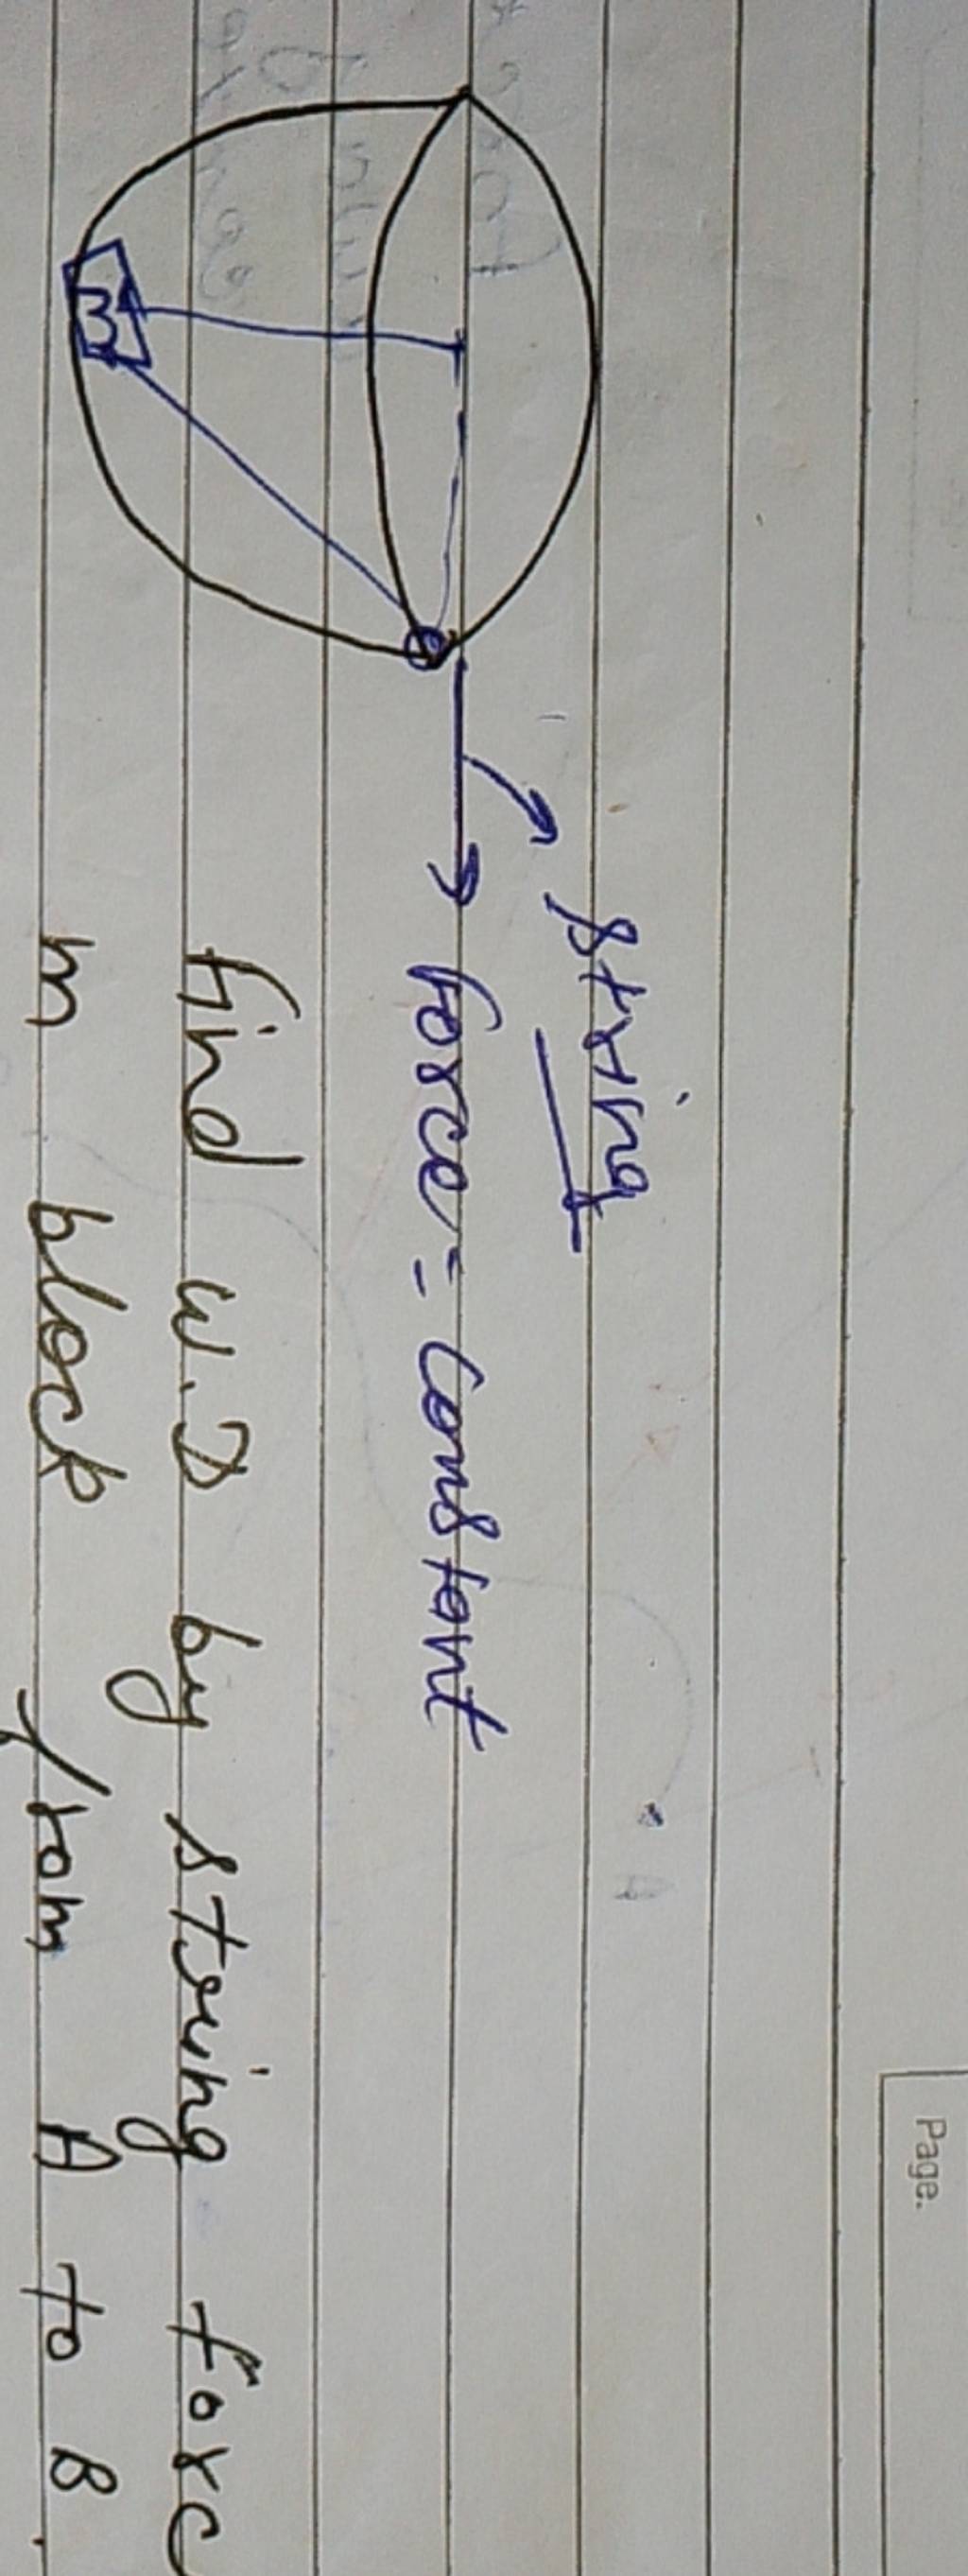 Page.
string
force = constant
find w.D by string forc
m
m block from A to B.